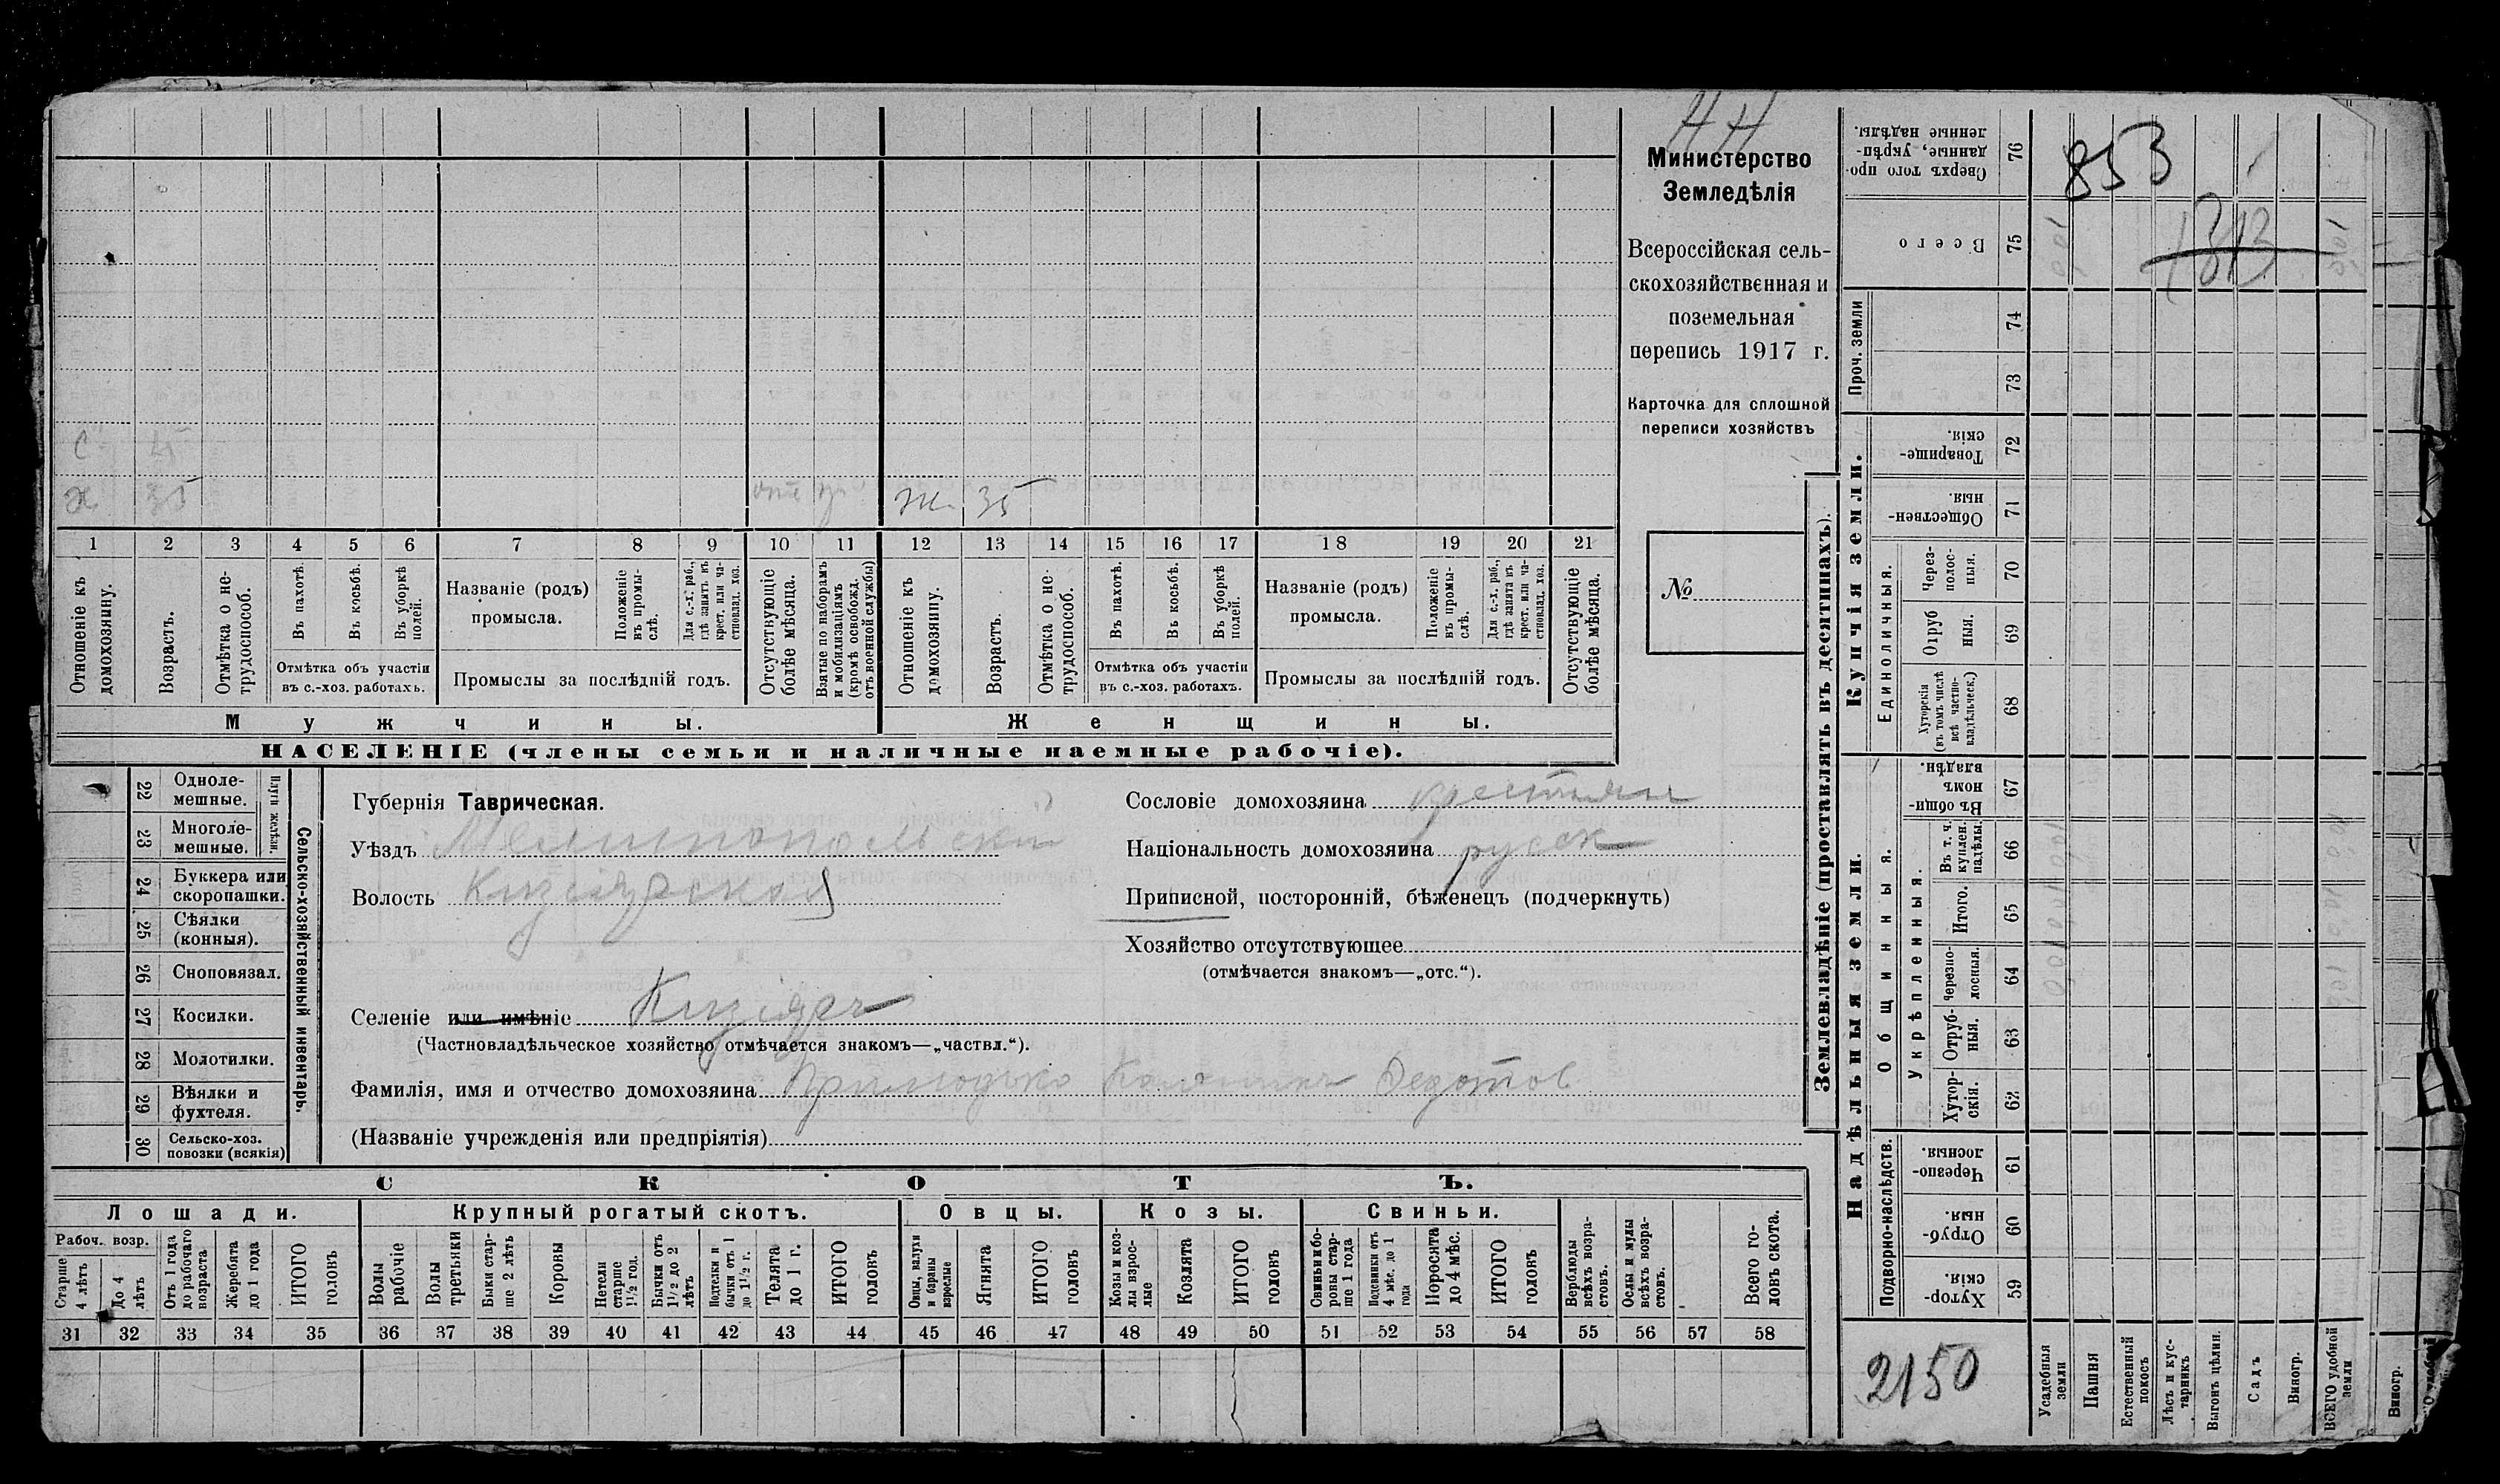 НН
Министерство
Земледѣлія
Всероссійская сель-
скохозяйственная и
поземельная
перепись 1917 г.
Карточка для сплошной
переписи хозяйствъ
№
С 4
Х 35 Ж 35
1 2 3 4 5 6 7 8 9 10 11 12 13 14 15 16 17 18 19 20 21
Отношеніе къ домохозяину.
Возрастъ.
Отмѣтка о не-трудоспособ.
Въ пахотѣ.
Въ косьбѣ.
Въ уборкѣ полей.
Отмѣтка объ участіи
въ с.-хоз. работахъ.
Названіе (родъ)
промысла.
Положеніе въ промы-слѣ.
Для с.-х. раб., гдѣ занятъ въ крест. или ча-стновлад. хоз.
Промыслы за послѣдній годъ.
Отсутствующіе болѣе мѣсяца.
Взятые по наборамъ и мобилизаціямъ (кромѣ освобожд. отъ военной службы)
Отношеніе къ домохозяину.
Возрастъ.
Отмѣтка о не-трудоспособ.
Въ пахотѣ.
Въ косьбѣ.
Въ уборкѣ полей.
Отмѣтка объ участіи
въ с.-хоз. работахъ.
Названіе (родъ)
промысла.
Положеніе въ промы-слѣ.
Для с.-х. раб., гдѣ занята въ крест. или ча-стновлад. хоз.
Промыслы за послѣдній годъ.
Отсутствующіе болѣе мѣсяца.
Мужчины. Женщины.
НАСЕЛЕНІЕ (члены семьи и наличные наемные рабочіе).
22 Одноле-мешные.
23 Многоле-мешные.
Плуги желѣзн.
24 Буккера или скоропашки.
25 Сѣялки (конныя).
26 Сноповязал.
27 Косилки.
28 Молотилки.
29 Вѣялки и фухтеля.
30 Сельско-хоз. повозки (всякія)
Сельско-хозяйственный инвентарь.
Губернія Таврическая.
Уѣздъ Мелитопольский
Волость Кизіярская
Селеніе или имѣніе Кизіяръ
(Частновладѣльческое хозяйство отмѣчается знакомъ—„частвл.“).
Фамилія, имя и отчество домохозяина Федотов
(Названіе учрежденія или предпріятія)
Сословіе домохозяина крестьян
Національность домохозяина русск
Приписной, посторонній, бѣженецъ (подчеркнуть)
Хозяйство отсутствующее
(отмѣчается знакомъ—„отс.“).
СКОТЪ.
Лошади. Крупный рогатый скотъ. Овцы. Козы. Свиньи.
Рабоч. возр.
Старше 4 лѣтъ
До 4 лѣтъ
Отъ 1 года до рабочаго возраста
Жеребята до 1 года
ИТОГО головъ
Волы рабочіе
Волы третьяки
Быки стар-ше 2 лѣтъ
Коровы
Нетели старше 1½ год.
Бычки отъ 1½ до 2 лѣтъ
Подтелки и бычки отъ 1 до 1½ г.
Телята до 1 г.
ИТОГО головъ
Овцы, валухи и бараны взрослые
Ягнята
ИТОГО головъ
Козы и коз-лы взрос-лые
Козлята
ИТОГО головъ
Свиньи и бо-ровы стар-ше 1 года
Подсвинки отъ 4 мѣс. до 1 года
Поросята до 4 мѣс.
ИТОГО головъ
Верблюды всѣхъ возра-стовъ.
Ослы и мулы всѣхъ возра-стовъ.
Всего го-ловъ скота.
31 32 33 34 35 36 37 38 39 40 41 42 43 44 45 46 47 48 49 50 51 52 53 54 55 56 57 58
Землевладѣніе (проставлять въ десятинахъ).
76 Сверхъ того про-данные, укрѣп-ленные надѣлы.
75 Всего
853
1313
Проч. земли
74
73
Купчія земли.
72 Товарище-скія.
71 Обществен-ныя.
Единоличныя.
70 Через-полос-ныя.
69 Отруб ныя.
68 Хуторскія (въ томъ числѣ всѣ частно-владѣльческ.)
Надѣльныя земли.
Общинныя.
67 Въ общин-номъ владѣн.
Укрѣпленныя.
66 Въ т. ч. куплен. надѣлы.
65 Итого.
64 Черезпо-лосныя.
63 Отруб-ныя.
62 Хутор-скія.
Подворно-наслѣдств.
61 Черезпо-лосныя.
60 Отруб-ныя.
59 Хутор-скія.
2150
Усадебныя земли
Пашня
Естественный покосъ
Лѣсъ и кус-тарникъ
Выгонъ цѣлин.
Садъ
Виногр.
ВСЕГО удобной земли
Виногр.